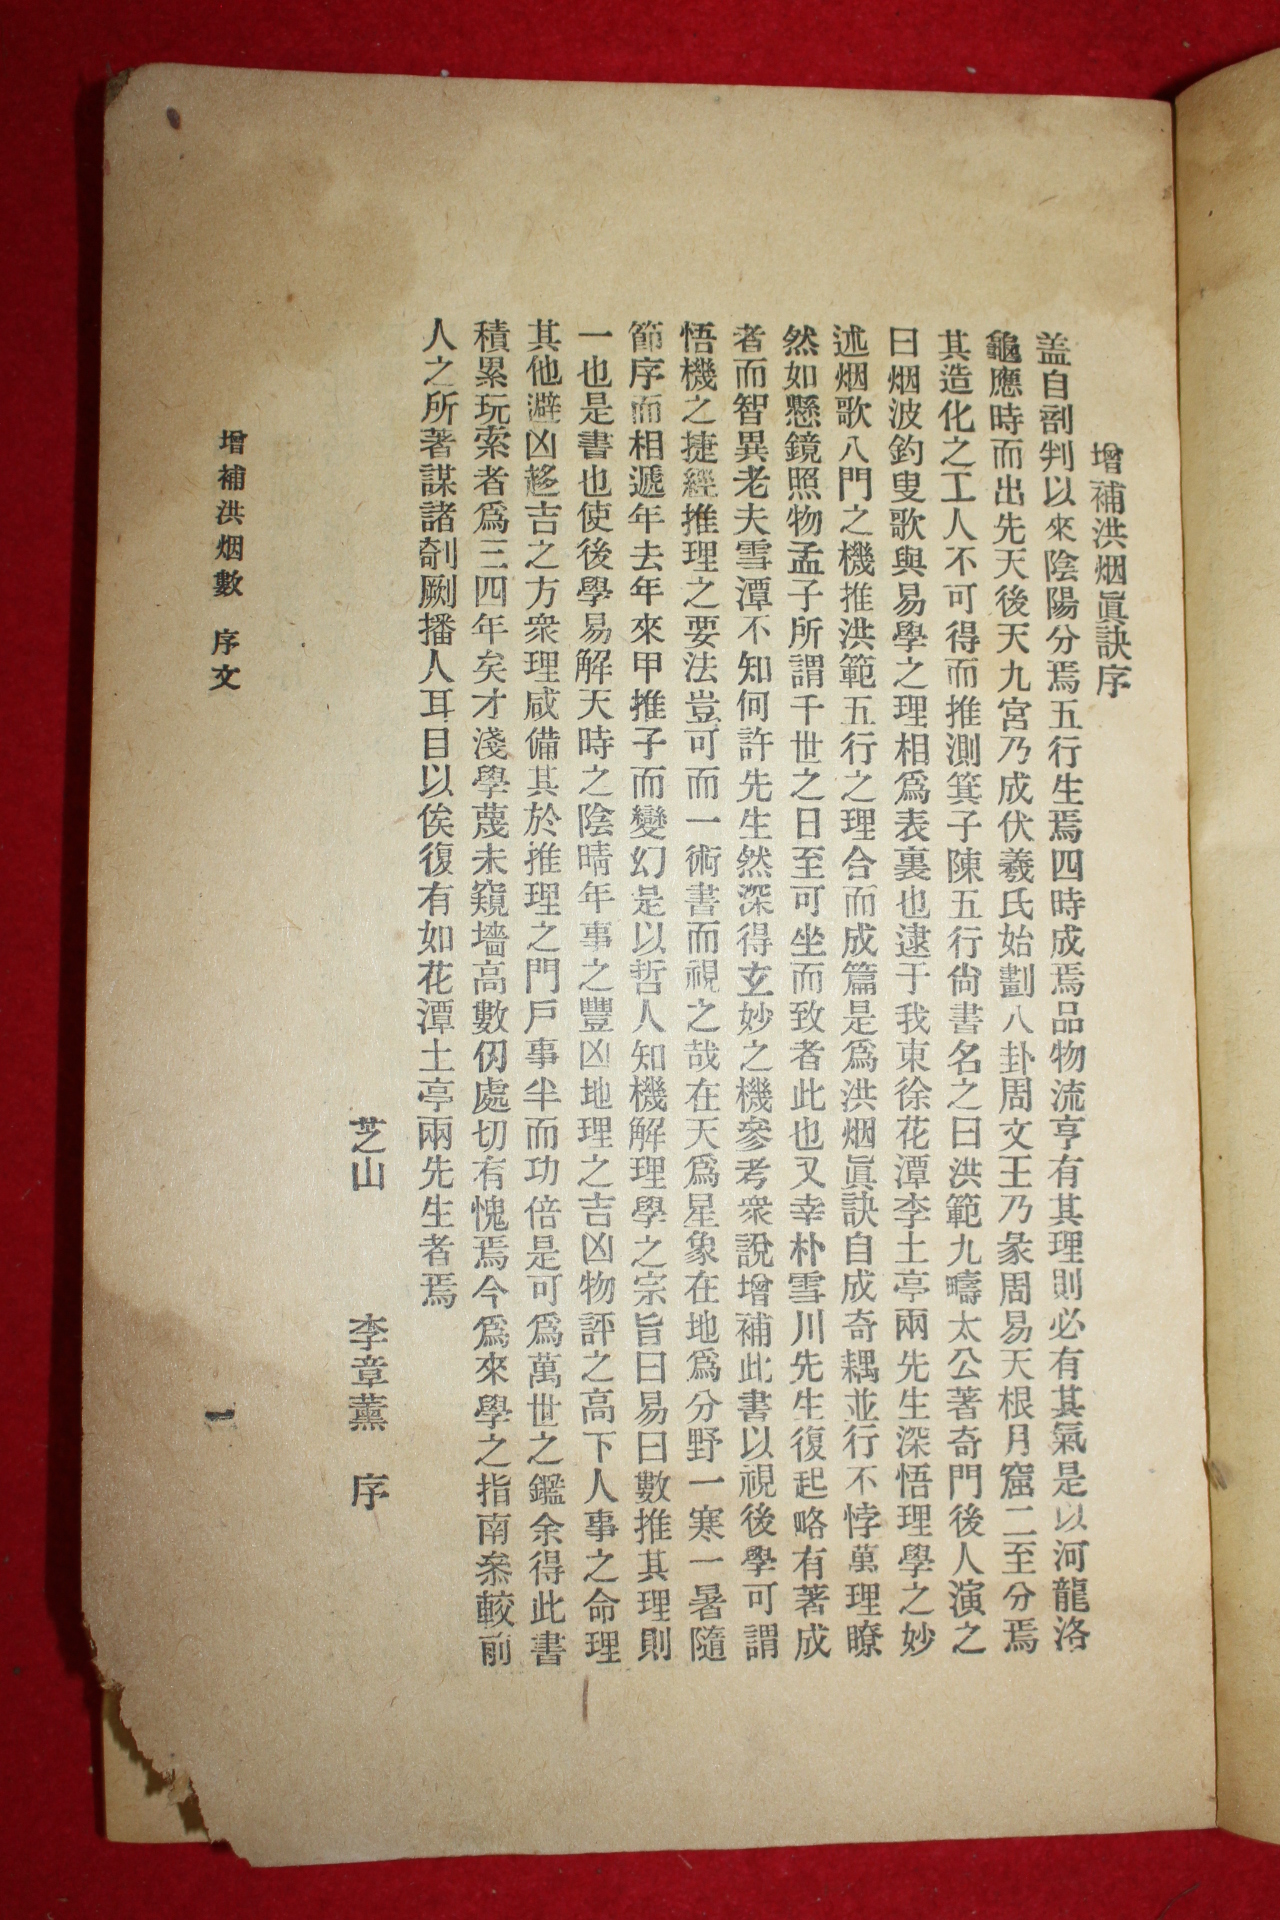 增補洪烟眞訣序
盖自剖判以來陰陽分焉五行生焉四時成焉品物流亨有其理則必有其氣是以河龍洛
龜應時而出先天後天九宮乃成伏羲氏始劃八卦周文王乃彖周易天根月窟二至分焉
其造化之工人不可得而推測箕子陳五行尙書名之曰洪範九疇太公著奇門後人演之
曰烟波釣叟歌與易學之理相爲表裏也逮于我東徐花潭李土亭兩先生深悟理學之妙
述烟歌八門之機推洪範五行之理合而成篇是爲洪烟眞訣自成奇耦並行不悖萬理瞭
然如懸鏡照物孟子所謂千世之日至可坐而致者此也又幸朴雪川先生復起略有著成
者而智異老夫雪潭不知何許先生然深得玄妙之機參考衆說增補此書以視後學可謂
悟機之捷經推理之要法豈可而一術書而視之哉在天爲星象在地爲分野一寒一暑隨
節序而相遞年去年來甲推子而變幻是以哲人知機解理學之宗旨曰易曰數推其理則
一也是書也使後學易解天時之陰晴年事之豐凶地理之吉凶物評之高下人事之命理
其他避凶趍吉之方衆理咸備其於推理之門戶事半而功倍是可爲萬世之鑑余得此書
積累玩索者爲三四年矣才淺學蔑未窺墻高數仞處切有愧焉今爲來學之指南叅較前
人之所著謀諸剞劂播人耳目以俟復有如花潭土亭兩先生者焉
芝山 李章薰 序
增補洪烟數 序文
一